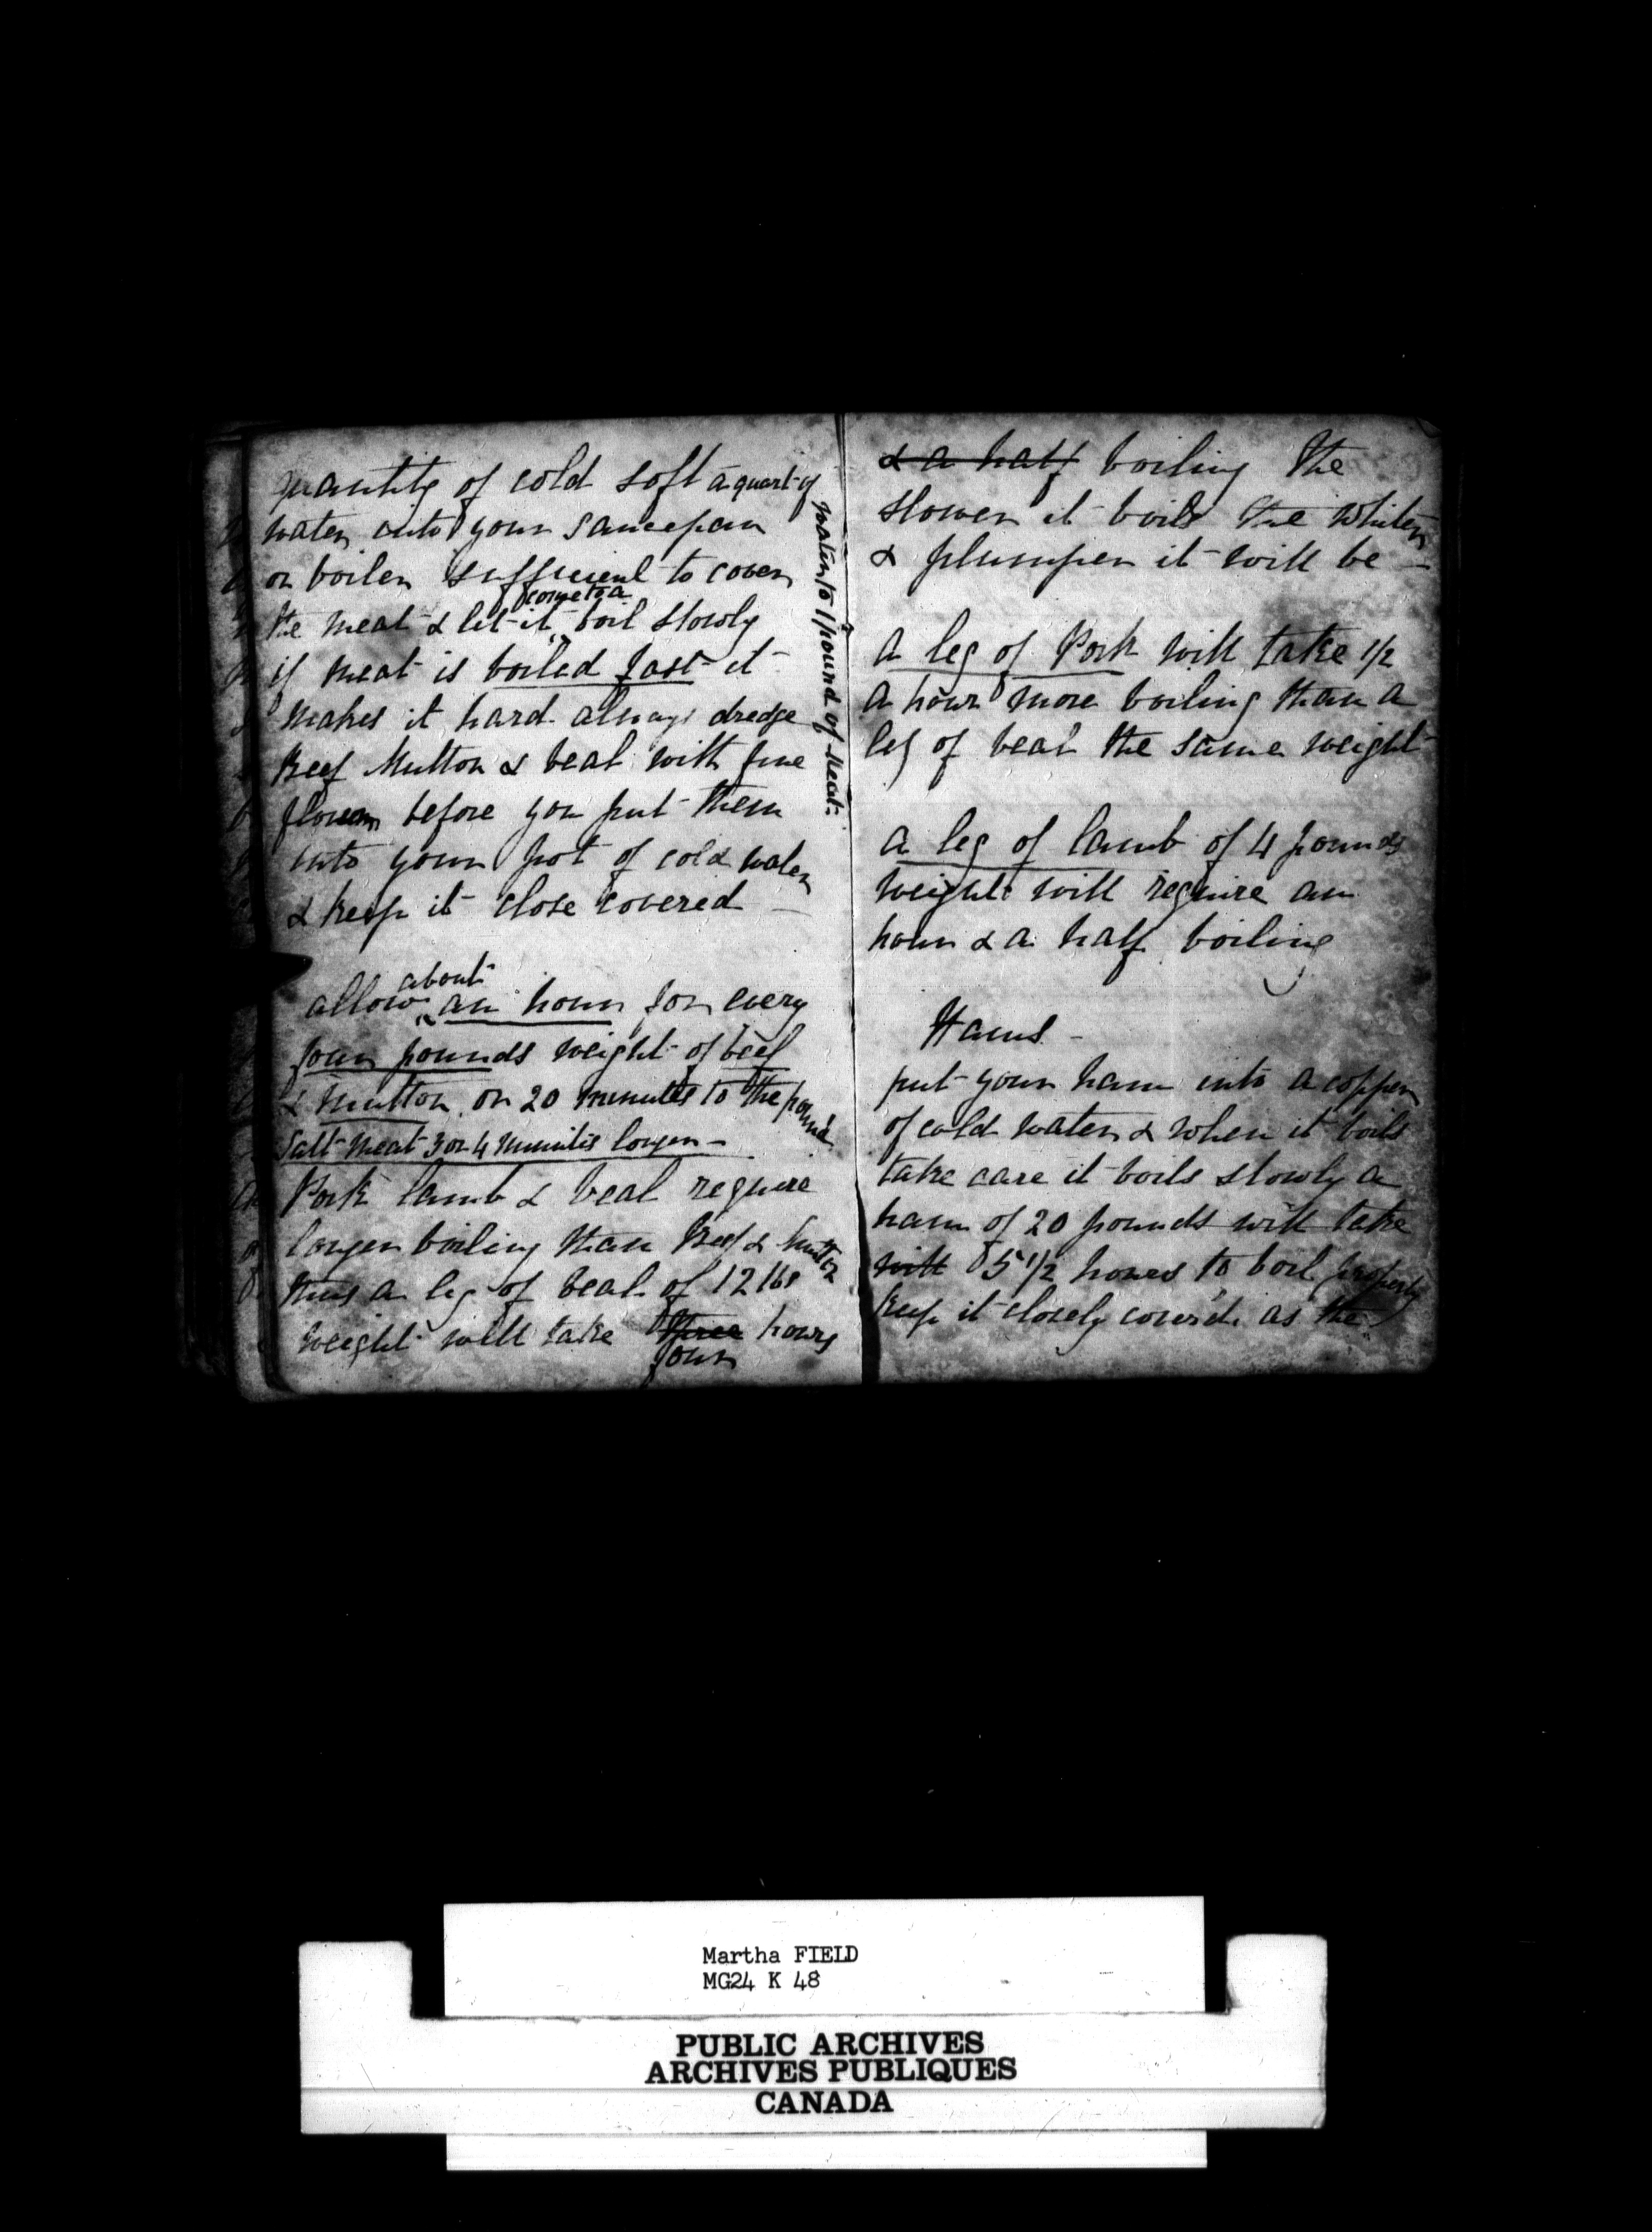 quantity of cold soft a quart of
water to 1 pound of Meat.
water into your saucepan
or boiler sufficient to cover
come to a
the meat & let it boil slowly
if meat is boiled fast it
makes it hard always dredge
Beef Mutton & veal with fine
flower before you put them
into your pot of cold water
& keep it close covered —
about
allow an hour for every
four pounds weight of beef
& mutton or 20 minutes to the pound
Salt meat 3 or 4 minutes longer —
Pork lamb & veal require
longer boiling than Beef & Mutton
thus a leg of veal of 12 lbs
weight will take three hours
four
& a half boiling the
slower it boils the whiter
& plumper it will be —
A leg of Pork will take 1/2
a hour more boiling than a
leg of veal the same weight
A leg of lamb of 4 pounds
weight will require an
hour & a half boiling
Hams —
put your ham into a copper
of cold water & when it boils
take care it boils slowly a
ham of 20 pounds will take
will 5 1/2 hours to boil properly
keep it closely cover'd as the
Martha FIELD
MG24 K 48
PUBLIC ARCHIVES
ARCHIVES PUBLIQUES
CANADA